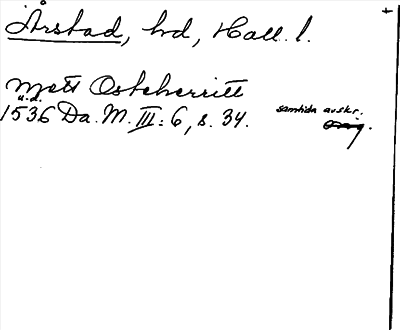 Årstad, hd, Hall. l.
Matt Osteherritt
u.d.
1536 Da. M. III: 6, s. 34. samtida avskr.
orig.